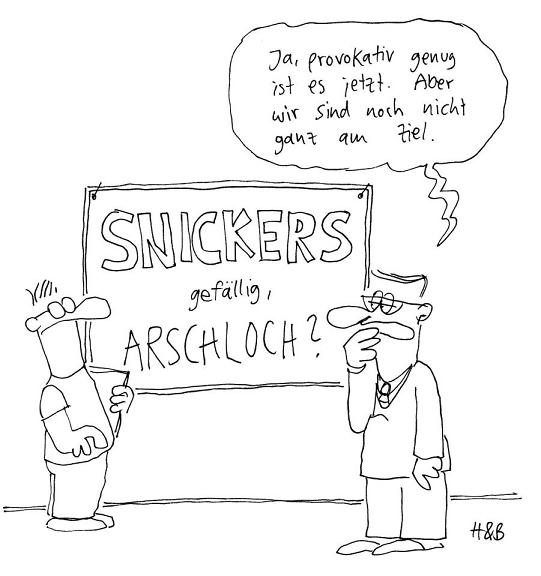 Ja, provokativ genug
ist es jetzt. Aber
wir sind noch nicht
ganz am Ziel.
SNICKERS
gefällig,
ARSCHLOCH?
H&B